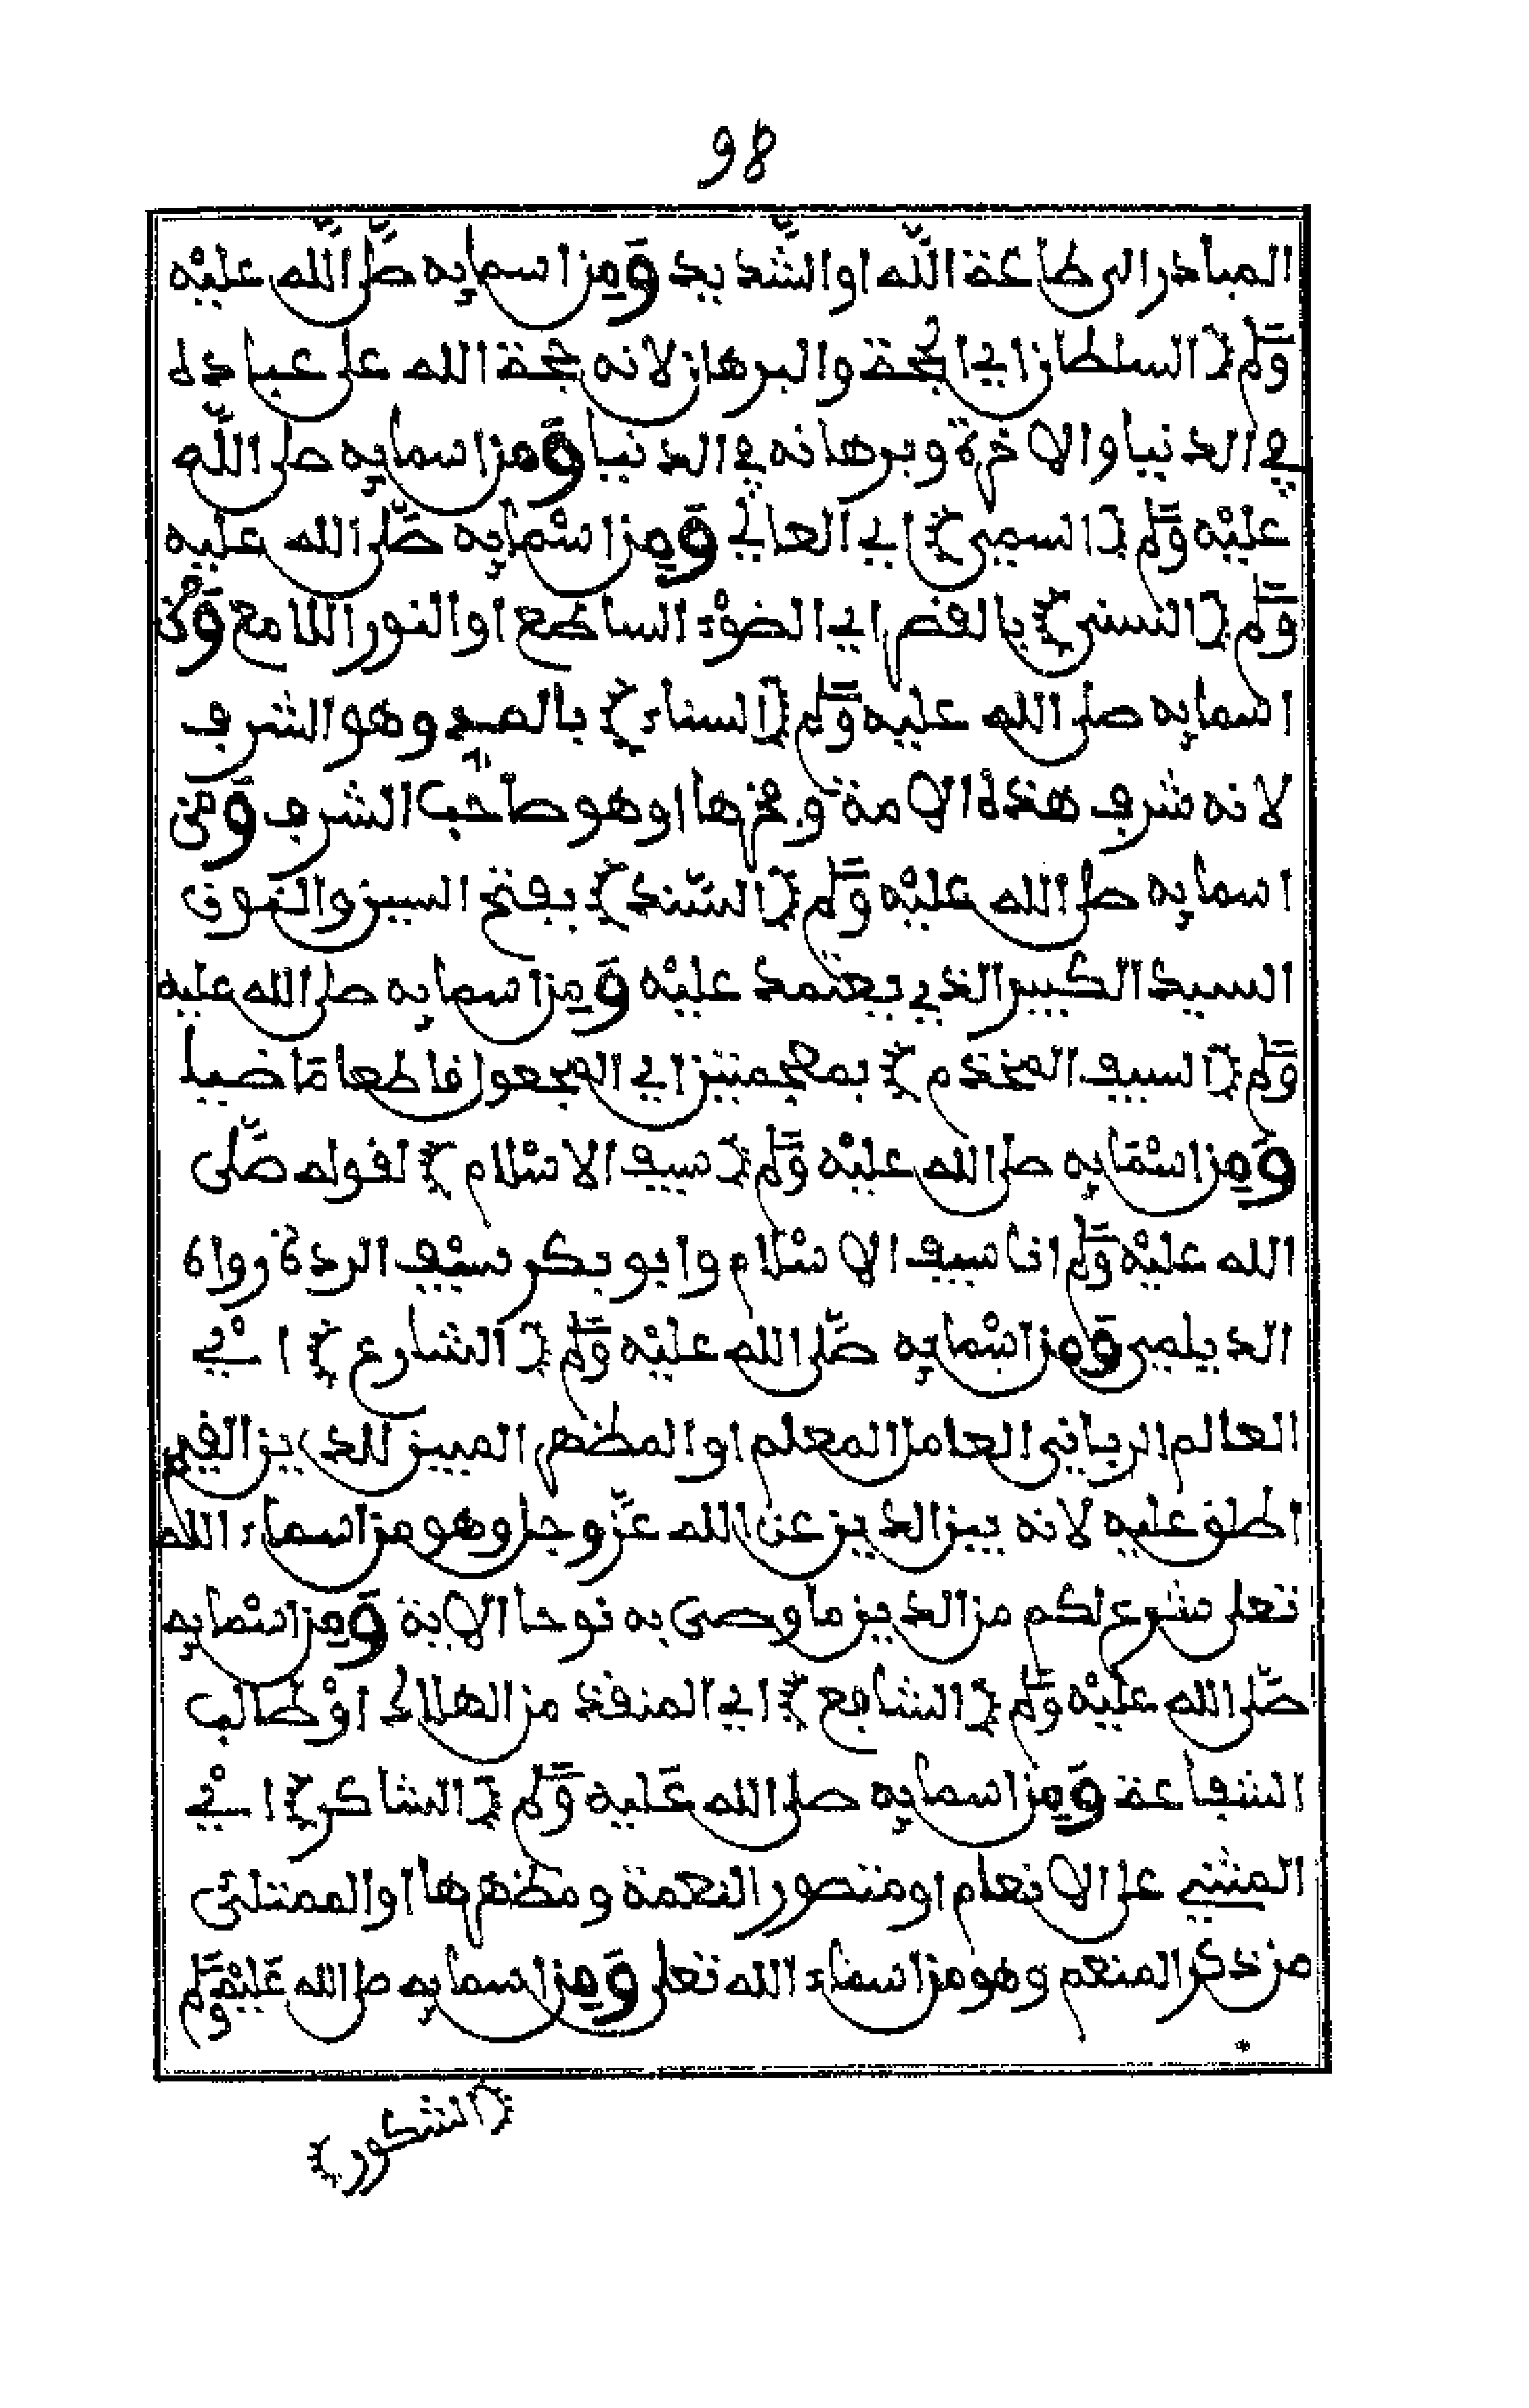 98
المبادر الى طاعة الله او الشديد ومن اسمايه صلى الله عليه
وسلم (السلطان) اي الحجة والبرهان لانه حجة الله على عباده
في الدنيا والاخرة وبرهانه في الدنيا ومن اسمايه صلى الله
عليه وسلم (السمي) اي العالي ومن اسمايه صلى الله عليه
وسلم (السنى) بالقصر اي الضوء الساطع او النور اللامع ومن
اسمايه صلى الله عليه وسلم (السناء) بالمد وهو الشرف
لانه شرف هذه الامة وفخرها او هو صاحب الشرف ومن
اسمايه صلى الله عليه وسلم (السند) بفتح السين والنون
السيد الكبير الذي يعتمد عليه ومن اسمايه صلى الله عليه
وسلم (السيف المخذم) بمعجمتين اي المجعول قاطعا ماضيا
ومن اسمايه صلى الله عليه وسلم (سيف الاسلام) لقوله صلى
الله عليه وسلم انا سيف الاسلام وابو بكر سيف الردة رواه
الديلمي ومن اسمايه صلى الله عليه وسلم (الشارع) اي
العالم الرباني العامل المعلم او المظهر المبين للدين القيم
اطلق عليه لانه بين الدين عن الله عز وجل وهو من اسماء الله
تعلى شرع لكم من الدين ما وصى به نوحا الاية ومن اسمايه
صلى الله عليه وسلم (الشافع) اي المنقذ من الهلاك او طالب
الشفاعة ومن اسمايه صلى الله عليه وسلم (الشاكر) اي
المثني على الانعام او متصور النعمة ومظهرها او الممتلئ
من ذكر المنعم وهو من اسماء الله تعلى ومن اسمايه صلى الله عليه وسلم
(الشكور)